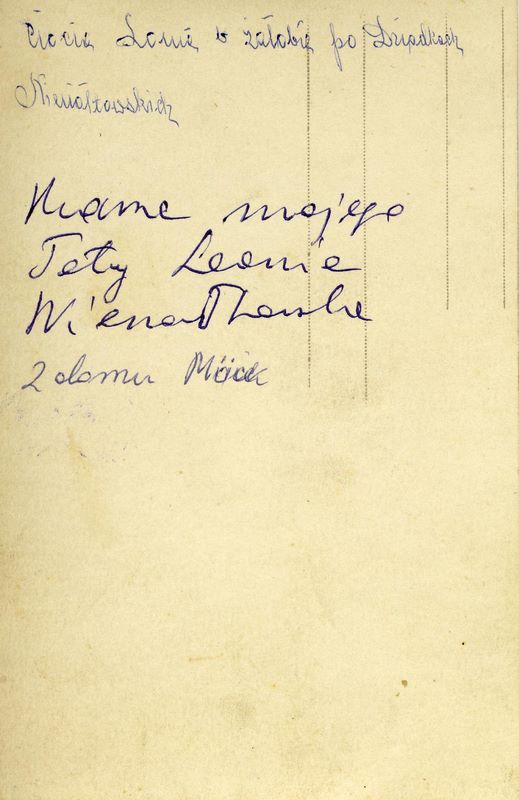 Ciocia Lonia w żałobie po Dziadkach
Nienałtowskich
Mama mojego
Taty Leonia
Nienałtowska
z domu Möck